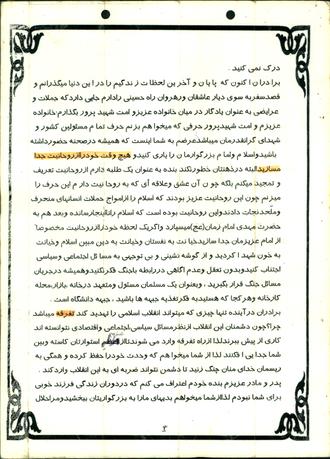 درک نمی کنید.
برادران اکنون که پایان و آخرین لحظات زندگیم را در این دنیا میگذرانم و
قصد سفر به سوی دیار عاشقان و رهروان راه حسینی را دارم جایی دارد که جملات و
عرایضی به عنوان یادگار در میان خانواده عزیز و امت شهید پرور بگذارم خانواده
عزیزم و امت شهید پرور حرفی که میخواهم بزنم حرف تمام مسئولین کشور و
شهدای گرانقدرمان میباشد عرضم به شما اینست که همیشه در صحنه حضور داشته
باشید و اسلام و امام بزرگوارمان را یاری کنید و هیچ وقت خود را از روحانیت جدا
مسازید البته در ذهنتان خطور نکند بنده به عنوان یک طلبه دارم از روحانیت تعریف
و تمجید میکنم بلکه چون آن عشق و علاقه ای که به روحانیت دارم این حرف را
میزنم چون این روحانیت عزیز بودند که اسلام را از امواج حملات انسانهای منحرف
و ملحد نجات دادند و این روحانیت بوده است که اسلام را تا اینجا رسانده و بعد هم به
حضرت مهدی امام زمان (عج) میسپارد و اگر یک لحظه خود را از روحانیت مخصوصا
از امام عزیزمان جدا سازید خیانت به نفستان و خیانت به دین مبین اسلام و خیانت
به خون شهدا کردید و از گوشه نشینی و بی توجهی به مسائل اجتماعی و سیاسی
اجتناب کنید و بدون تعقل و عدم آگاهی در رابطه با جنگ فکر نکنید و همیشه در جریان
مسائل جنگ قرار بگیرید، و بعنوان یک مسلمان مسئول و متعهد در خانه، بازار، محله
کارخانه و هر کجا که هستید به فکر تغذیه جبهه ها باشید، جبهه دانشگاه است.
برادران در آینده تنها چیزی که میتواند انقلاب اسلامی را تهدید کند تفرقه میباشد
چرا که چون دشمنان این انقلاب از نظر مسائل سیاسی، اجتماعی و اقتصادی نتوانسته اند
کاری از پیش ببرند لذا از راه تفرقه وارد می شوند تا از عزم استوارتان کاسته و بین
شما جدایی افکنند لذا از شما میخواهم که وحدت خود را حفظ کرده و همگی به
ریسمان خدای منان چنگ زنید تا دشمن نتواند ضربه ای به این انقلاب وارد کند.
پدر و مادر عزیزم بنده خودم اعتراف می کنم که در دوران زندگی فرزند خوبی
برای شما نبودم لذا از شما میخواهم بدیهای مارا به بزرگواریتان ببخشید و مراحلال
۳